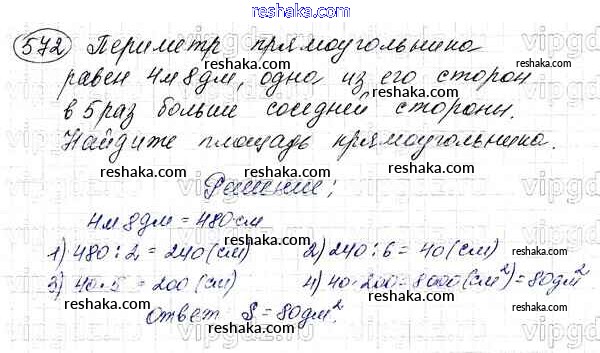 reshaka.com
572 Периметр прямоугольника
reshaka.com
равен 4м 8дм, одна из его сторон
в 5 раз больше соседней стороны.
reshaka.com
Найдите площадь прямоугольника.
reshaka.com reshaka.com
Решение:
reshaka.com reshaka.com
4м 8дм = 480см
1) 480:2=240(см) 2) 240:6=40(см)
reshaka.com reshaka.com
3) 40·5=200(см) 4) 40·200=8000(см²)=80дм²
reshaka.com reshaka.com
ответ S=80дм².
reshaka.com